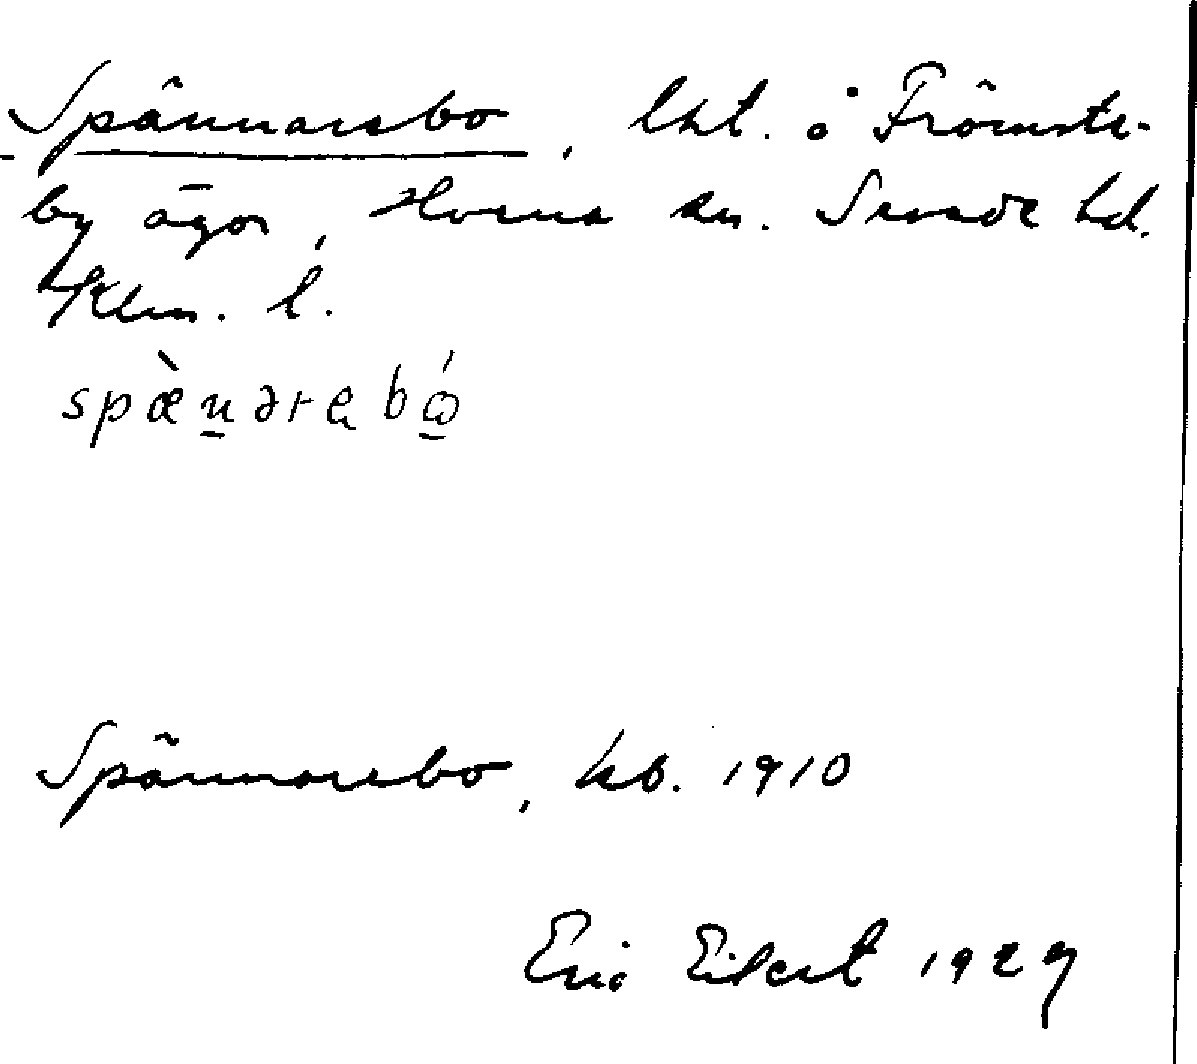 Spännarebo, lht. å Frömste-
by ägor, Horns sn. Sevede hd.
Klm. l.
spæ̀n̲ərebó̲
Spännarebo, kb. 1910
Eric Eilert 1929